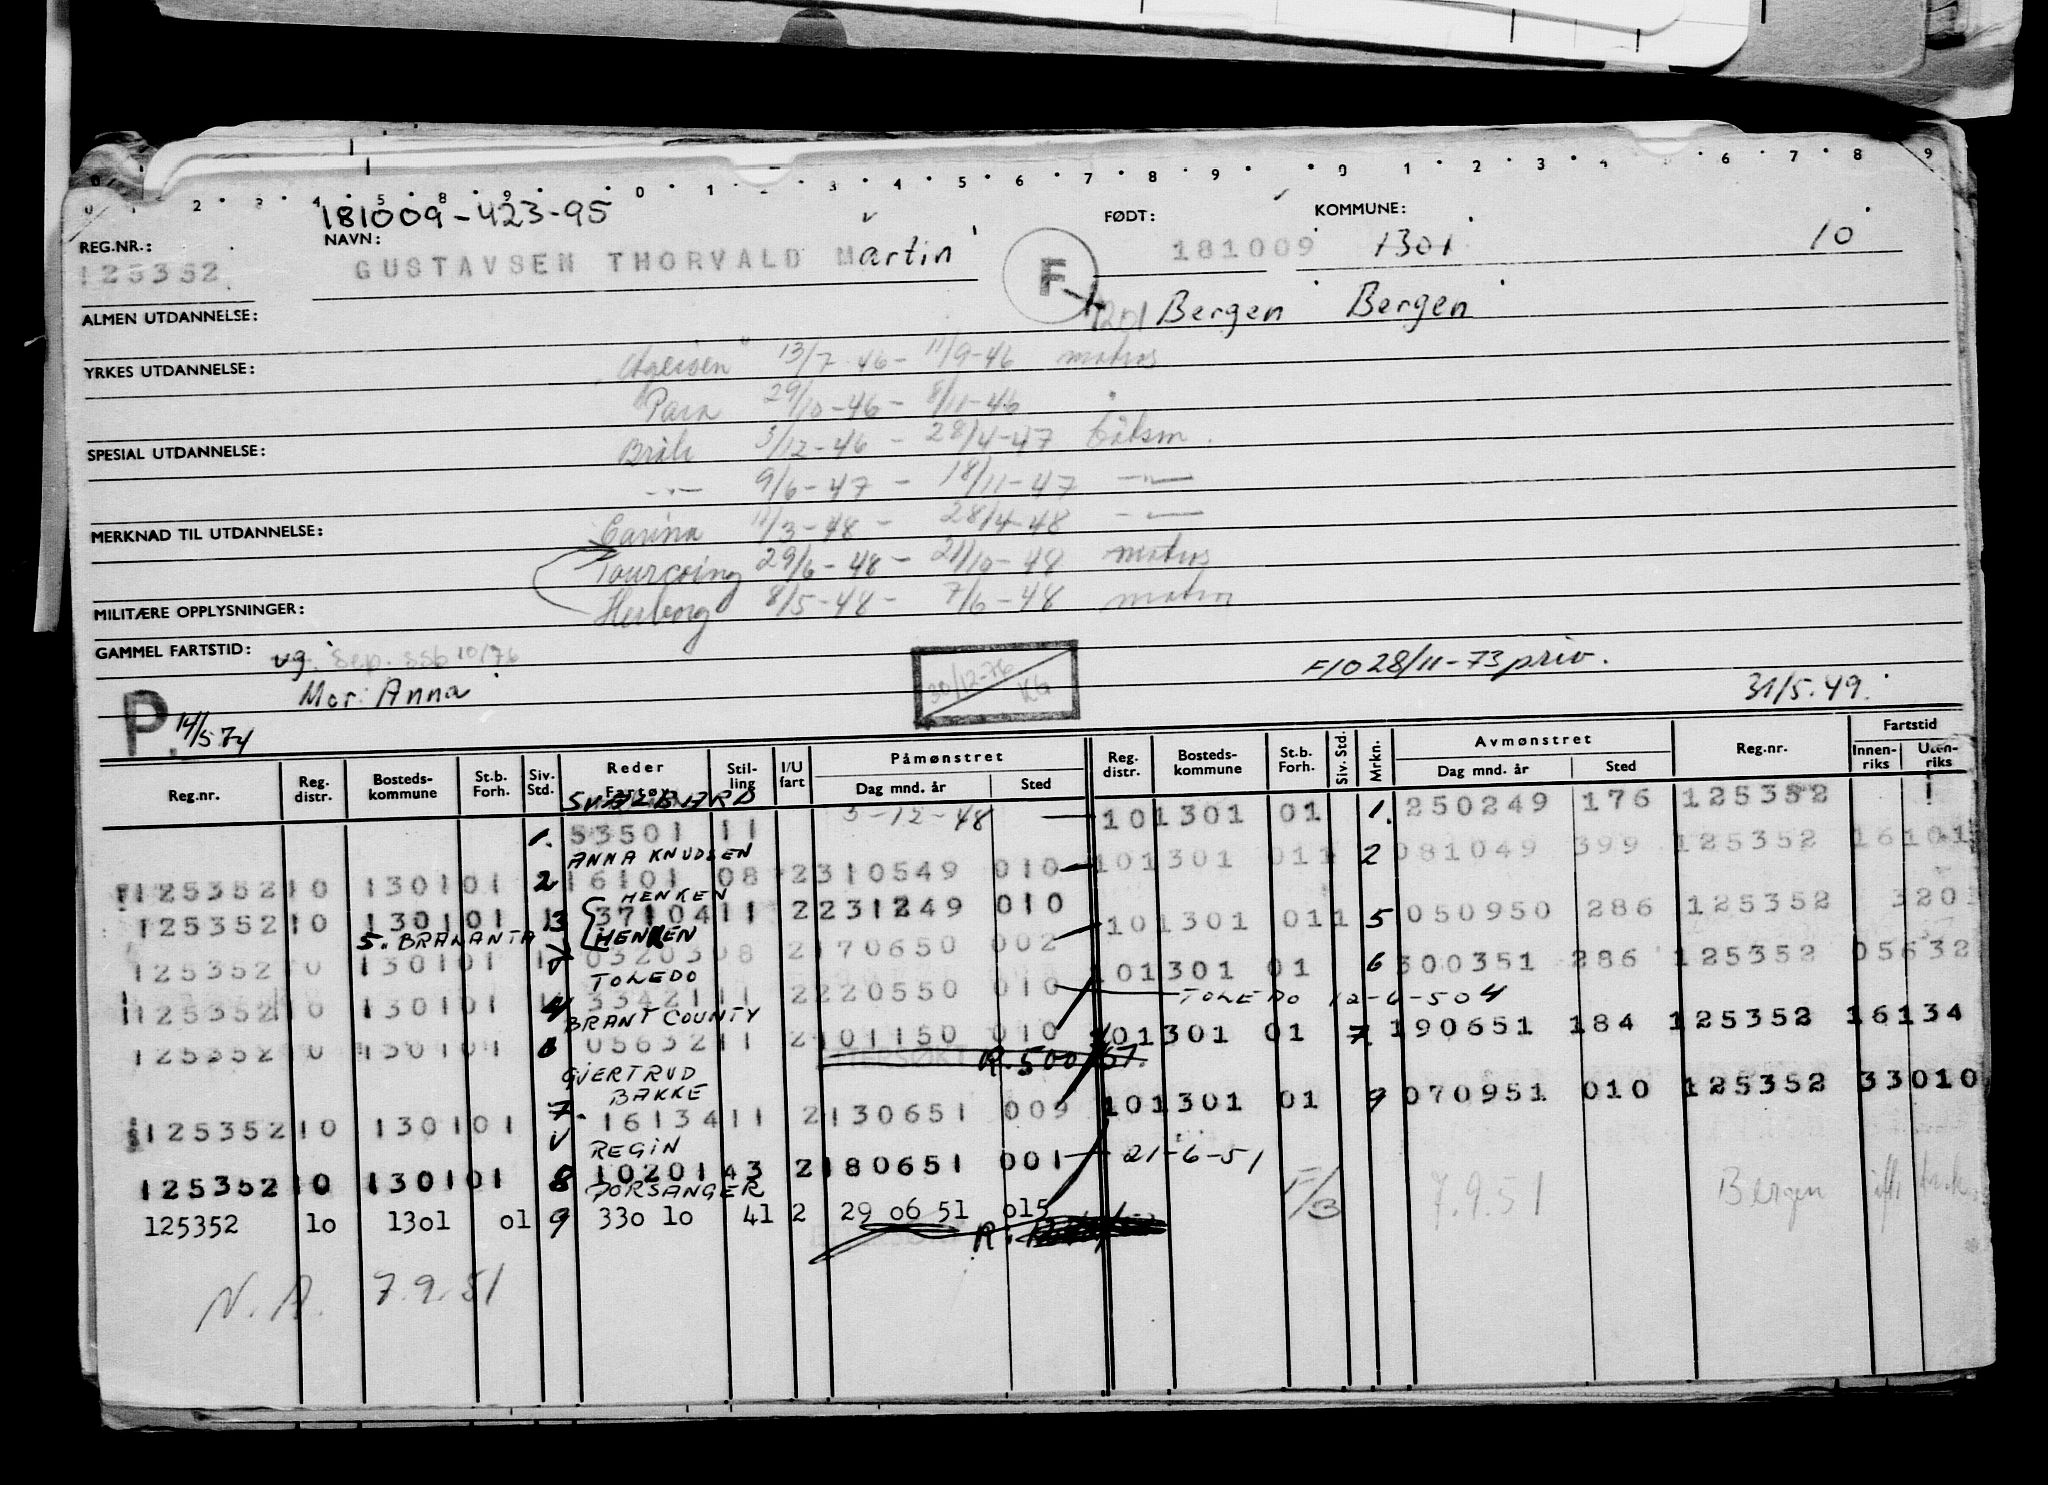 181009-423-95
REG.NR.: NAVN: FØDT: KOMMUNE:
125352 GUSTAVSEN THORVALD Martin F 181009 1301 10
ALMEN UTDANNELSE: 1201 Bergen Bergen
YRKES UTDANNELSE: 13/7-46 - 11/9-46 matros
Para 29/10-46 - 8/11-46 "
SPESIAL UTDANNELSE: 3/12-46 - 28/4-47 båtsm.
-"- 9/6-47 - 18/11-47 -"-
MERKNAD TIL UTDANNELSE: Carina 11/3-48 - 28/4-48 -"-
Tourcoing 29/6-48 - 21/10-48 matros
MILITÆRE OPPLYSNINGER: Herborg 8/5-48 - 7/6-48 matros
GAMMEL FARTSTID: vg. Sep. ssb 10/76
30/12-76 F/O 28/11-73 priv.
Mor: Anna 31/5.49.
P. 14/5 74
Påmønstret Avmønstret Fartstid
Reg.nr. Reg. distr. Bosteds- kommune St.b. Forh. Siv. Std. Reder Fartøy Stil- ling I/U fart Dag mnd. år Sted Reg. distr. Bosteds- kommune St.b. Forh. Siv. Std. Mrkn. Dag mnd. år Sted Reg.nr. Innen- riks Uten- riks
SVALBARD
1. 53501 11 3-12-48 10 1301 01 1. 250249 176 125352
ANNA KNUDSEN
125352 10 1301 01 2 16101 08 2 310549 010 10 1301 011 2 081049 399 125352 16101
HENKEN
125352 10 1301 01 13 37104 11 2 231249 010 10 1301 011 5 050950 286 125352 3203
5. BRAHANTA HENKEN
125352 10 1301 01 03203 08 2 170650 002 10 1301 01 6 300351 286 125352 05632
TOLEDO
125352 10 1301 01 4 33421 11 2 220550 010 TOLEDO 12-6-50 4
BRANT COUNTY
125352 10 1301 01 6 05632 11 2 101150 010 10 1301 01 7. 190651 184 125352 16134
R. 500/67.
GJERTRUD
BAKKE
125352 10 1301 01 7. 16134 11 2 130651 009 10 1301 01 9 070951 010 125352 33010
REGIN
125352 10 1301 01 8 10201 43 2 180651 001 21-6-51
PORSANGER
125352 lo 13ol ol 9 33o lo 41 2 29 o6 51 o15 F/3 7.9.51 Bergen
R.
N. A. 7.9.51